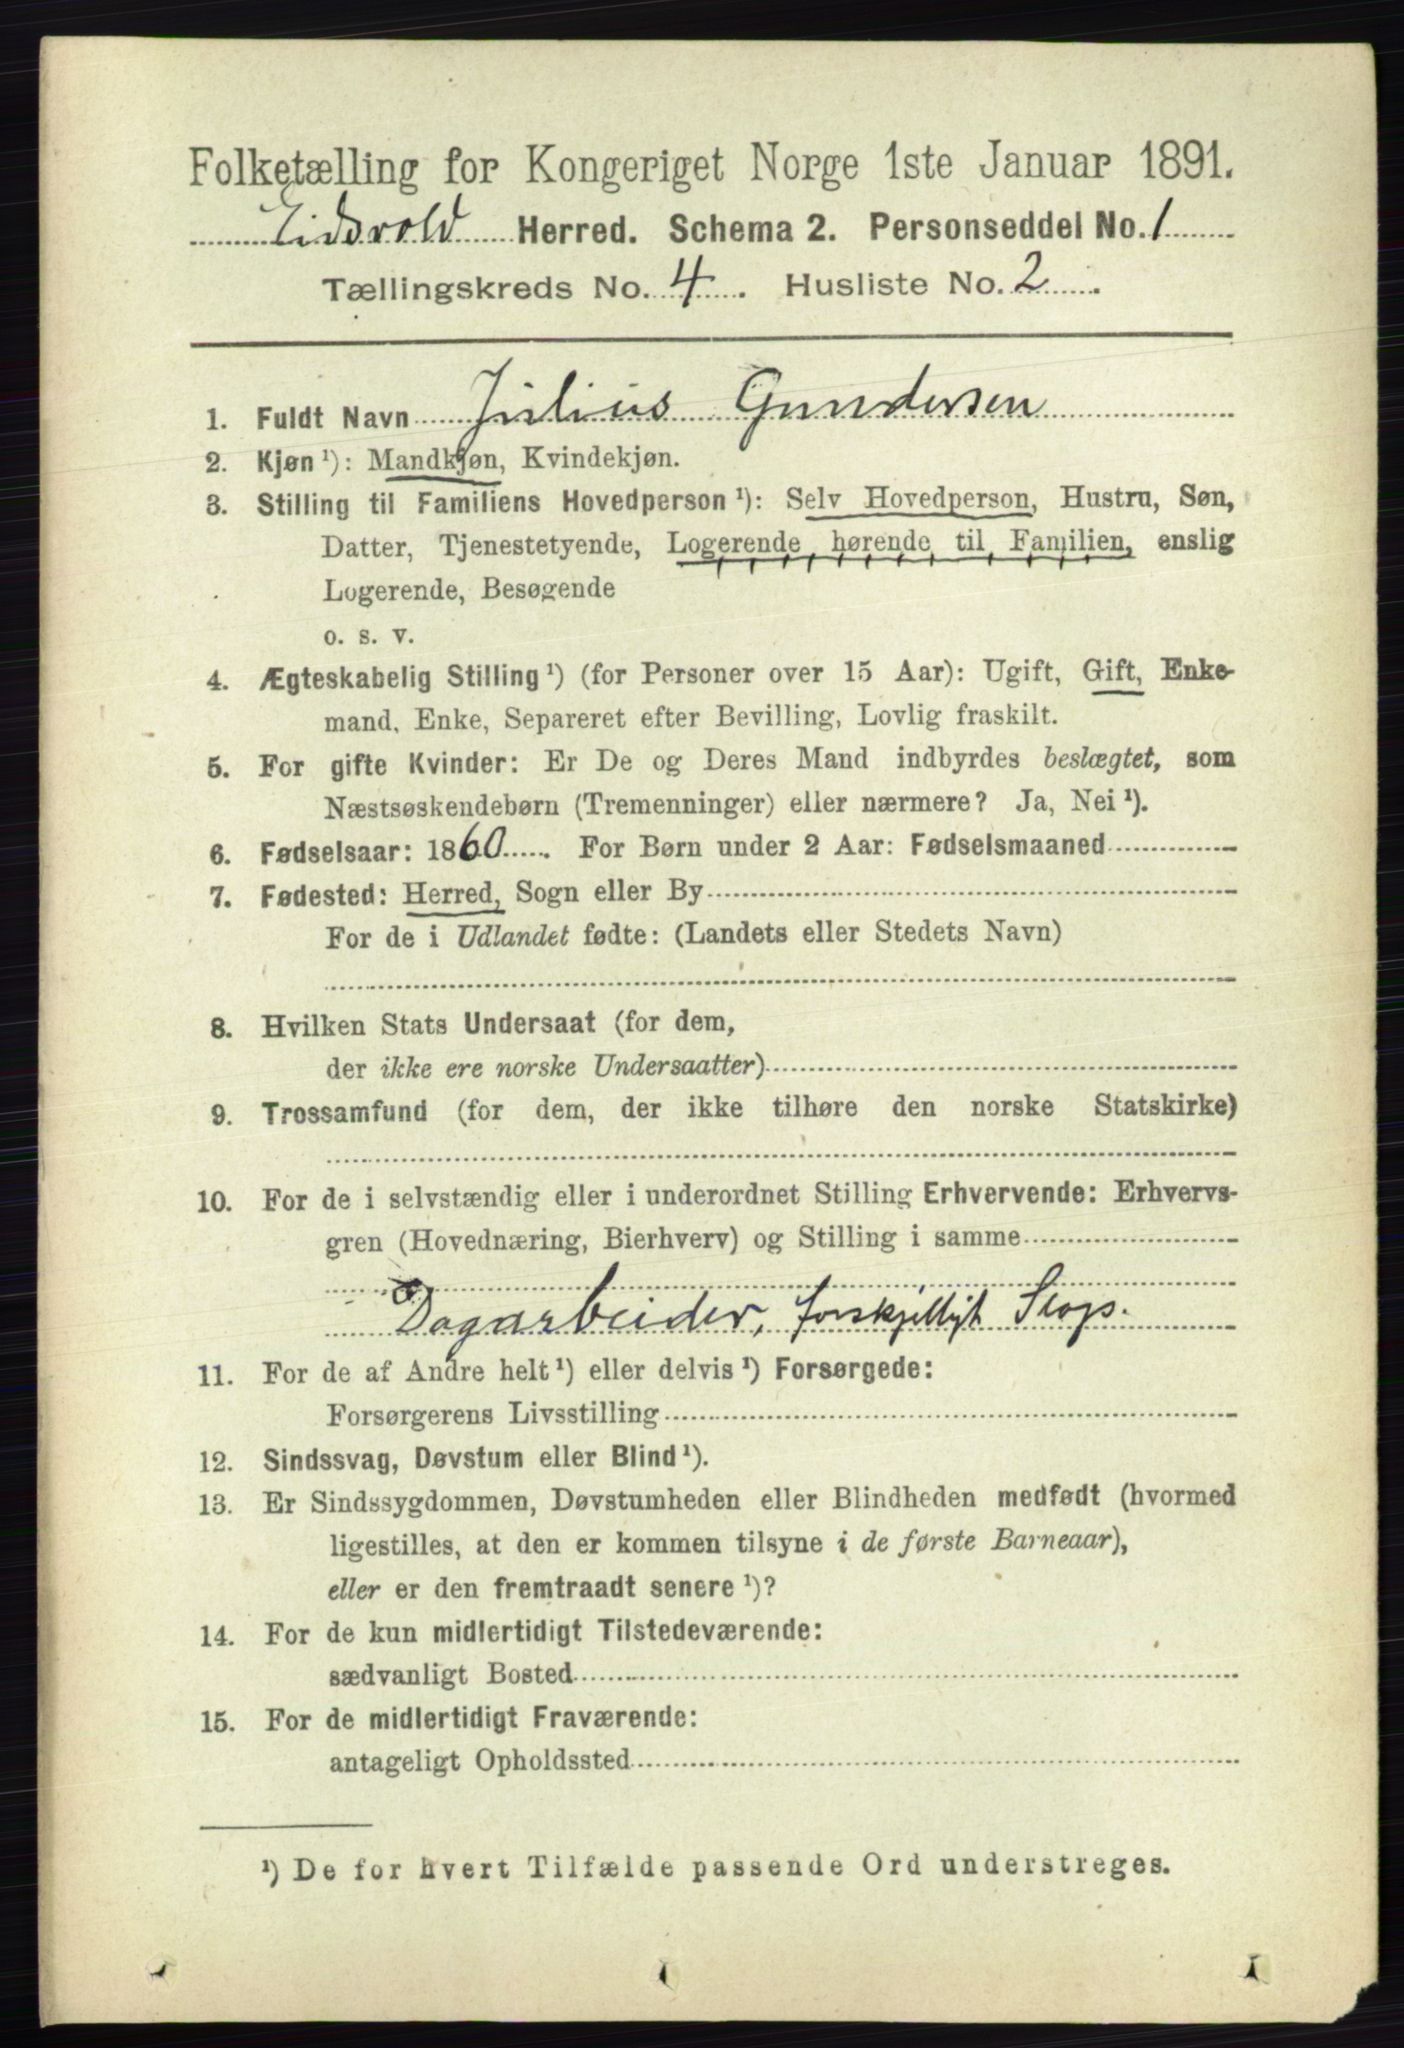 Folketælling for Kongeriget Norge 1ste Januar 1891.
Eidsvold Herred. Schema 2. Personseddel No. 1
Tællingskreds No. 4. Husliste No. 2.
1. Fuldt Navn Julius Gundersen
2. Kjøn ¹): Mandkjøn, Kvindekjøn.
3. Stilling til Familiens Hovedperson ¹): Selv Hovedperson, Hustru, Søn,
Datter, Tjenestetyende, Logerende hørende til Familien, enslig
Logerende, Besøgende
o. s. v.
4. Ægteskabelig Stilling ¹) (for Personer over 15 Aar): Ugift, Gift, Enke-
mand, Enke, Separeret efter Bevilling, Lovlig fraskilt.
5. For gifte Kvinder: Er De og Deres Mand indbyrdes beslægtet, som
Næstsøskendebørn (Tremenninger) eller nærmere? Ja, Nei ¹).
6. Fødselsaar: 1860. For Børn under 2 Aar: Fødselsmaaned
7. Fødested: Herred, Sogn eller By
For de i Udlandet fødte: (Landets eller Stedets Navn)
8. Hvilken Stats Undersaat (for dem,
der ikke ere norske Undersaatter)
9. Trossamfund (for dem, der ikke tilhøre den norske Statskirke)
10. For de i selvstændig eller i underordnet Stilling Erhvervende: Erhvervs-
gren (Hovednæring, Bierhverv) og Stilling i samme
Dagarbeider, forskjelligt Slags.
11. For de af Andre helt ¹) eller delvis ¹) Forsørgede:
Forsørgerens Livsstilling
12. Sindssvag, Døvstum eller Blind ¹).
13. Er Sindssygdommen, Døvstumheden eller Blindheden medfødt (hvormed
ligestilles, at den er kommen tilsyne i de første Barneaar),
eller er den fremtraadt senere ¹)?
14. For de kun midlertidigt Tilstedeværende:
sædvanligt Bosted
15. For de midlertidigt Fraværende:
antageligt Opholdssted
¹) De for hvert Tilfælde passende Ord understreges.